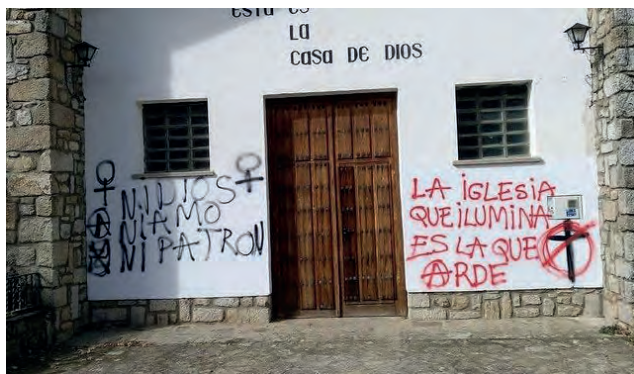 ESTA ES
LA
CASA DE DIOS
NI DIOS
NI AMO
NI PATRON
LA IGLESIA
QUE ILUMINA
ES LA QUE
ARDE